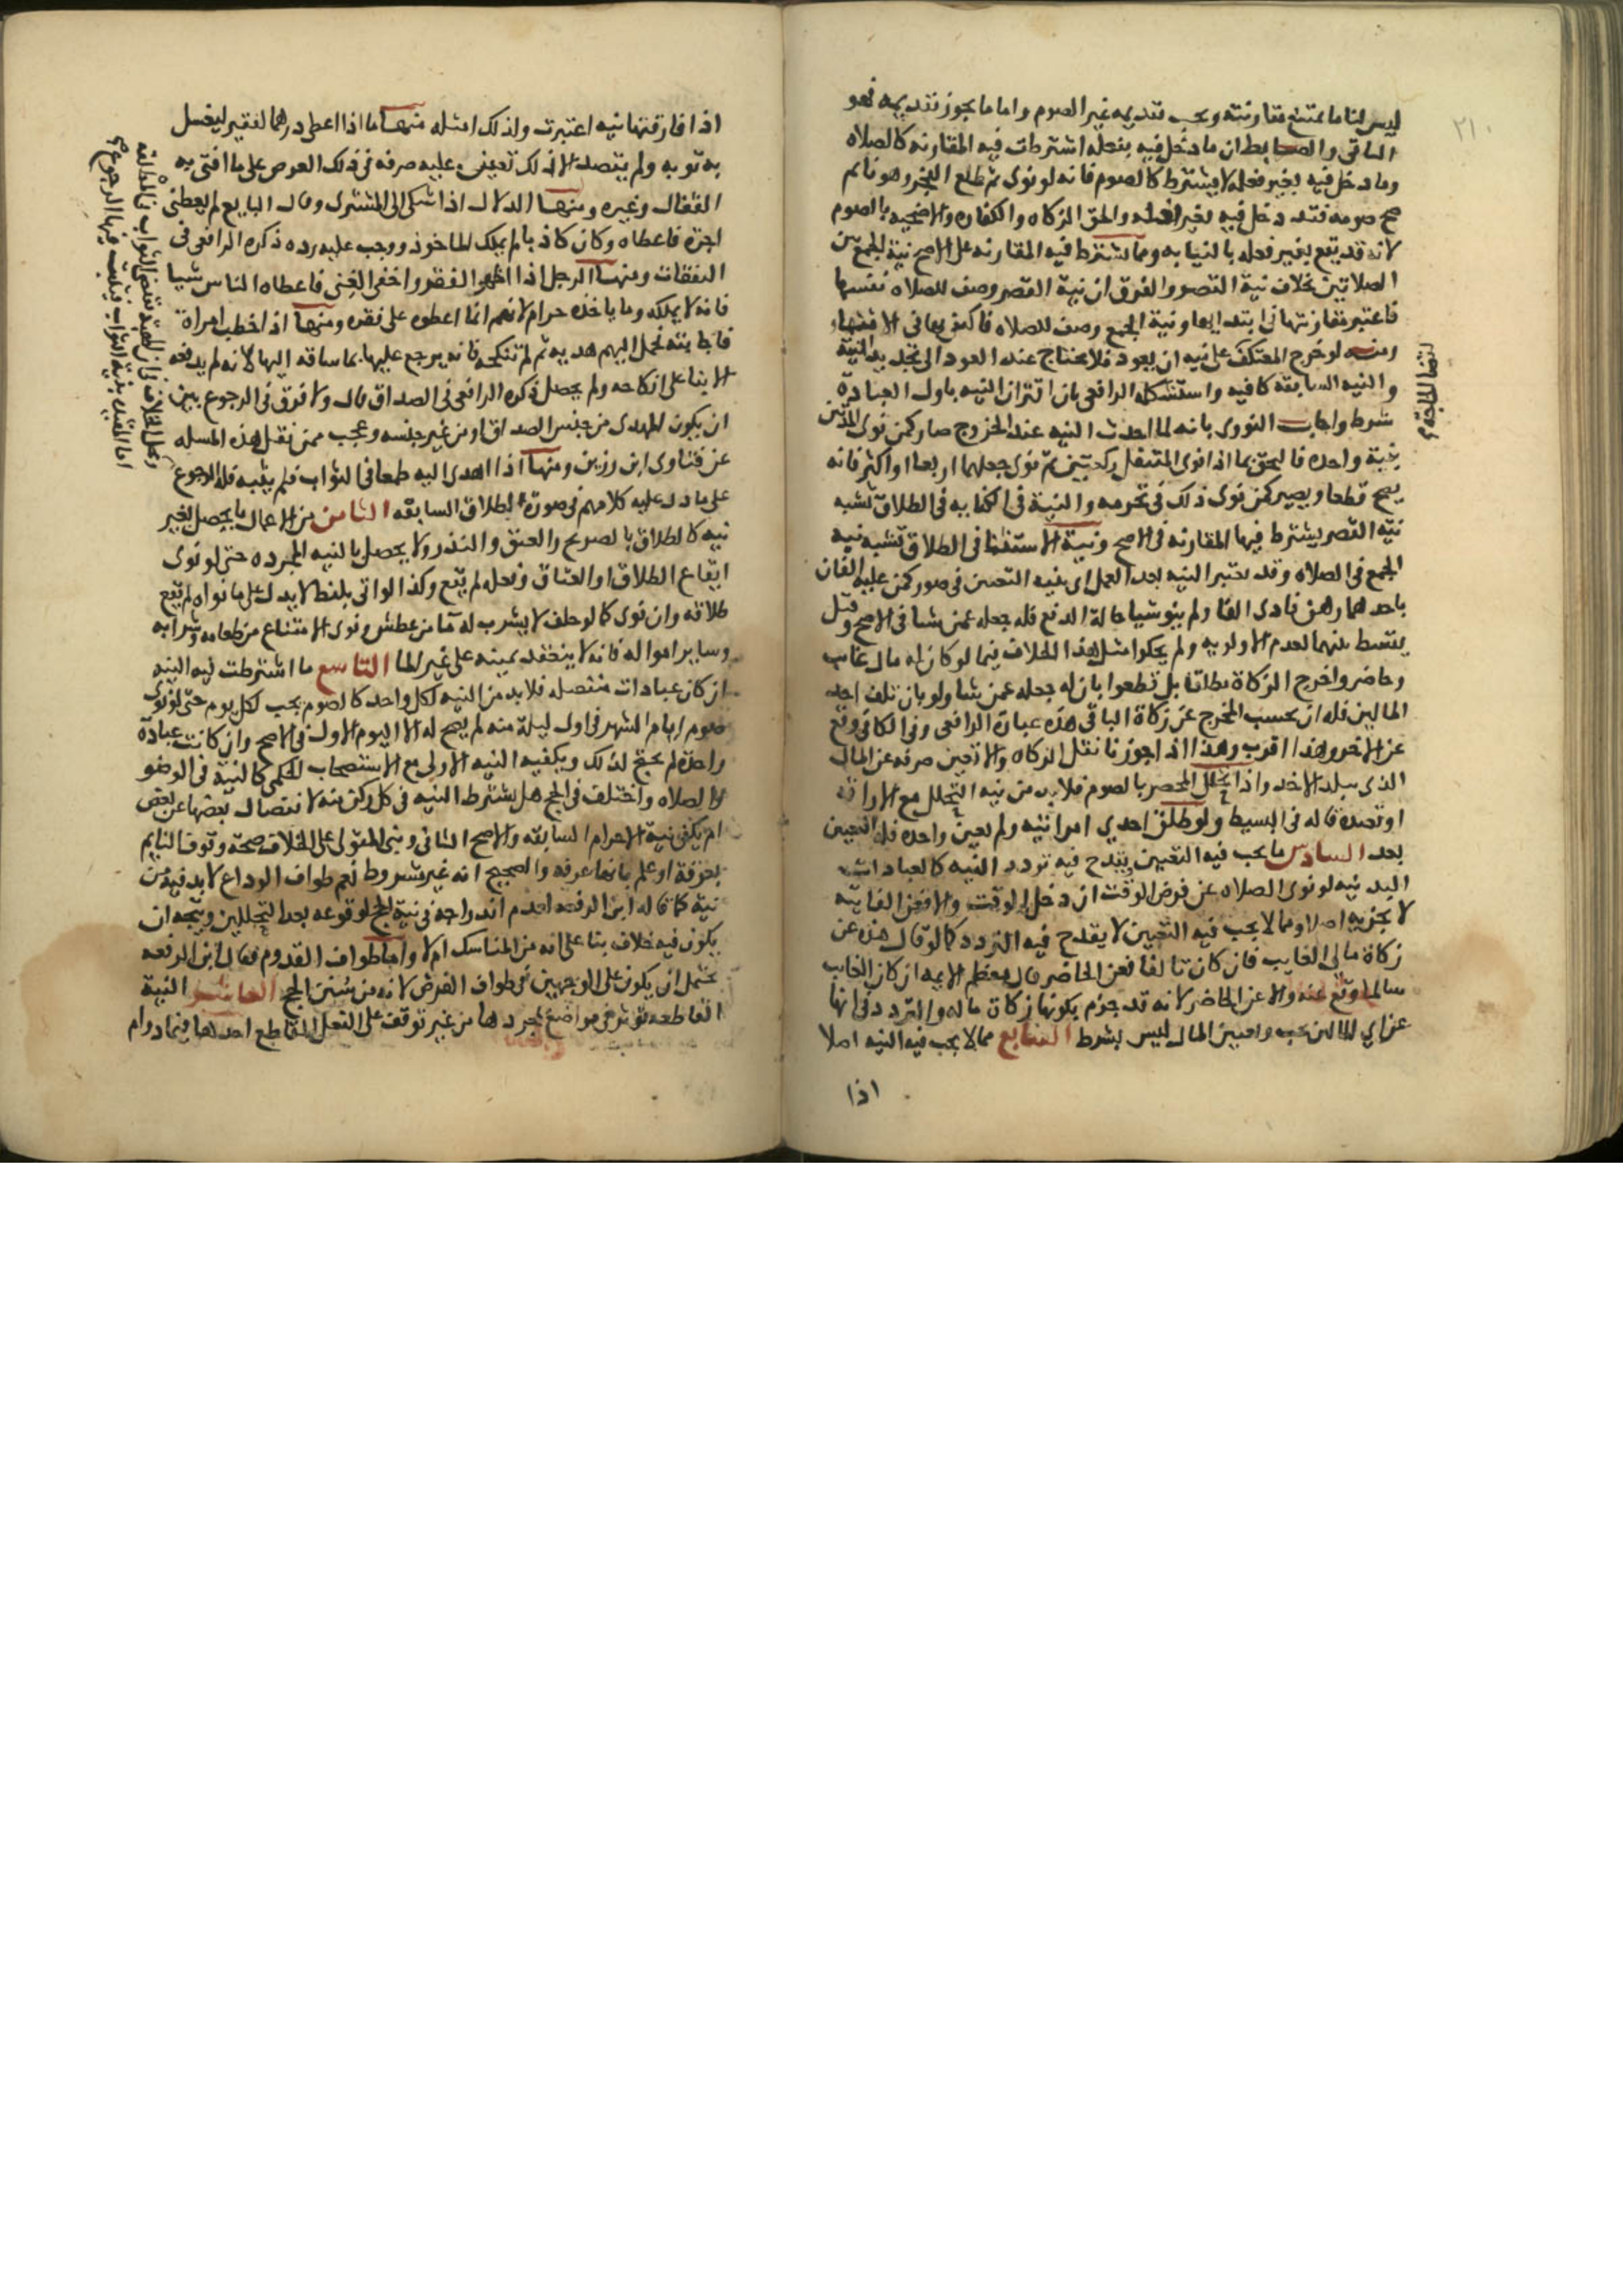 ليس لنا ما يمتنع مقارنته ويجب تقديمه غير الصوم واما ما يجوز تقديمه فهو
الباقي والضابط ان ما دخل فيه بفعله اشترطت فيه المقارنه كالصلاه
وما دخل فيه بغير فعله لا يشترط كالصوم فانه لو نوى ثم طلع الفجر وهو نايم
صح صومه فقد دخل فيه بغير فعله والحق الزكاه والكفاره والاضحيه بالصوم
لانه قد يقع بغير فعله بالنيابه ومما لا يشترط فيه المقارنه على الاصح نية الجمع بين
الصلاتين بخلاف نية القصر والفرق ان نية القصر وصف للصلاه نفسها
فاعتبر مقارنتها في ابتدايها ونية الجمع وصف للصلاه فاكتفي بها في اثنايها
ومنه لو خرج المعتكف على نيه ان يعود فلا يحتاج عند العود الى تجديد النية
والنيه السابقة كافيه واستشكله الرافعي بان اقتران النيه باول العبادة
شرط واجاب النووي بانه لما احدث النيه عند الخروج صار كمن نوى المدتين
بنية واحده قال يحق بما اذا نوى المتنفل ركعتين ثم نوى جعلهما اربعا او اكثر فانه
يصح قطعا ويصير كمن نوى ذلك في تحرمه والنية في الكنايه في الطلاق تشبه
نيه القصر يشترط فيها المقارنه في الاصح ونية الاستثنا في الطلاق تشبه نيه
الجمع في الصلاه وقد تعتبر النيه بعد العمل اي بنيه التعيين في صور كمن عليه الفان
باحدهما رهن فادى الفا ولم ينو شيا حالة الدفع فله جعله عمن شا في الاصح وقيل
يقسط بينهما لعدم الاولويه ولم يحكوا مثل هذا الخلاف فيما لو كان له مال غايب
وحاضر واخرج الزكاة مطلقا بل قطعوا بان له جعله عمن شا ولو بان تلف احد
المالين فله ان يحسب المخرج عن زكاة الباقي هذه عبارة الرافعي وفي الكافي وقع
عن الاخر وهذا اقرب وهذا اذا جوزنا نقل الزكاه والا تعين صرفه عن المال
الذي ببلد الاخذ واذا تحلل المحصر بالصوم فلابد من نيه التحلل مع الاراقه
او بعده قاله في البسيط ولو طلق احدي امراتيه ولم يعين واحده فله التعيين
بعد السادس ما يجب فيه التعيين يقدح فيه تردد النيه كالعبادات
البدنيه لو نوى الصلاه عن فرض الوقت ان دخل الوقت والا فعن الفايته
لا يجزيه اصلا ومما لا يجب فيه التعيين لا يقدح فيه التردد كما لو قال هذه عن
زكاة مالي الغايب فان كان تالفا فعن الحاضر قال معظم الايمه ان كان الغايب
سالما وقع عنه والا عن الحاضر لانه قد جزم بكونها زكاة ماله والتردد في انها
عن اي المالين يحسب وتعيين المال ليس بشرط السابع مما لا يجب فيه النيه اصلا
اذا
٢١٠
اذا قارنتها نيه اعتبرت ولذلك امثله منها ما اذا اعطى درهما لفقير ليغسل
به ثوبه ولم يقصد الا ذلك تعين عليه صرفه في ذلك الغرض على ما افتى به
القفال وغيره ومنها الدلال اذا شكى الى المشتري وقال البايع لم يعطني
اجرة فاعطاه وكان كاذبا لم يملك الماخوذ ووجب عليه رده ذكره الرافعي في
النفقات ومنها الرجل اذا اظهر الفقر واخفى الغنى فاعطاه الناس شيا
فانه لا يملكه وما ياخذه حرام لانهم انما اعطوه على فقره ومنها اذا خطب امراة
فاجابته فحمل اليهم هديه ثم لم تنكحه فانه يرجع عليها بما ساقه اليها لانه لم يدفعه
الا بنا على انكاحه ولم يحصل ذكره الرافعي في الصداق قال ولا فرق في الرجوع بين
ان يكون المهدى من جنس الصداق او من غير جنسه وعجب ممن نقل هذه المسله
عن فتاوى ابن رزين ومنها اذا اهدى اليه طمعا في الثواب فلم يثبه فله الرجوع
على ما دل عليه كلامهم في صورة الطلاق السابقه الثامن من الاعمال ما يحصل بغير
نيه كالطلاق بالصريح والعتق والنذر ولا يحصل بالنيه المجرده حتى لو نوى
ايقاع الطلاق او العتاق وفعله لم يقع وكذا لو اتى بلفظ لا يدل على ما نواه لم يقع
طلاقه وان نوى كما لو حلف لا يشرب له ما من عطش ونوى الامتناع من طعامه وشرابه
وساير امواله فانه لا ينعقد يمينه على غير الما التاسع ما اشترطت فيه النيه
ان كان عبادات منفصله فلا بد من النيه لكل واحد كالصوم يجب لكل يوم حتى لو نوى
صوم ايام الشهر في اول ليلة منه لم يصح له الا اليوم الاول في الاصح وان كانت عبادة
واحدة لم يحتج لذلك ويكفيه النيه الاولى مع الاستصحاب الحكمي كالنية في الوضو
والصلاه واختلف في الحج هل يشترط النيه في كل ركن منه لانفصال بعضها عن بعض
ام يكفي نية الاحرام السابقه والاصح الثاني وبنى المتولي على الخلاف صحة وقوف النايم
بعرفة او علم بانها عرفه والصحيح انه غير مشروط نعم طواف الوداع لابد فيه من
نية كما قاله ابن الرفعه لعدم اندراجه في نية الحج لوقوعه بعد التحللين ويتجه ان
يكون فيه خلاف بنا على انه من المناسك ام لا واما طواف القدوم فقال ابن الرفعه
يحتمل ان يكون على الوجهين في طواف الفرض لانه من سنن الحج العاشر النية
القاطعه تؤثر في مواضع بمجردها من غير توقف على الفعل القاطع احدها فيما دوام